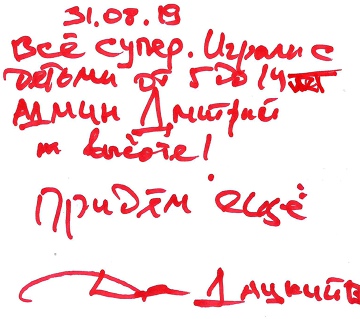 31.08.19
Всё супер. Играли с
детьми от 5 до 14 лет
Админ Дмитрий
на высоте!
Придём ещё